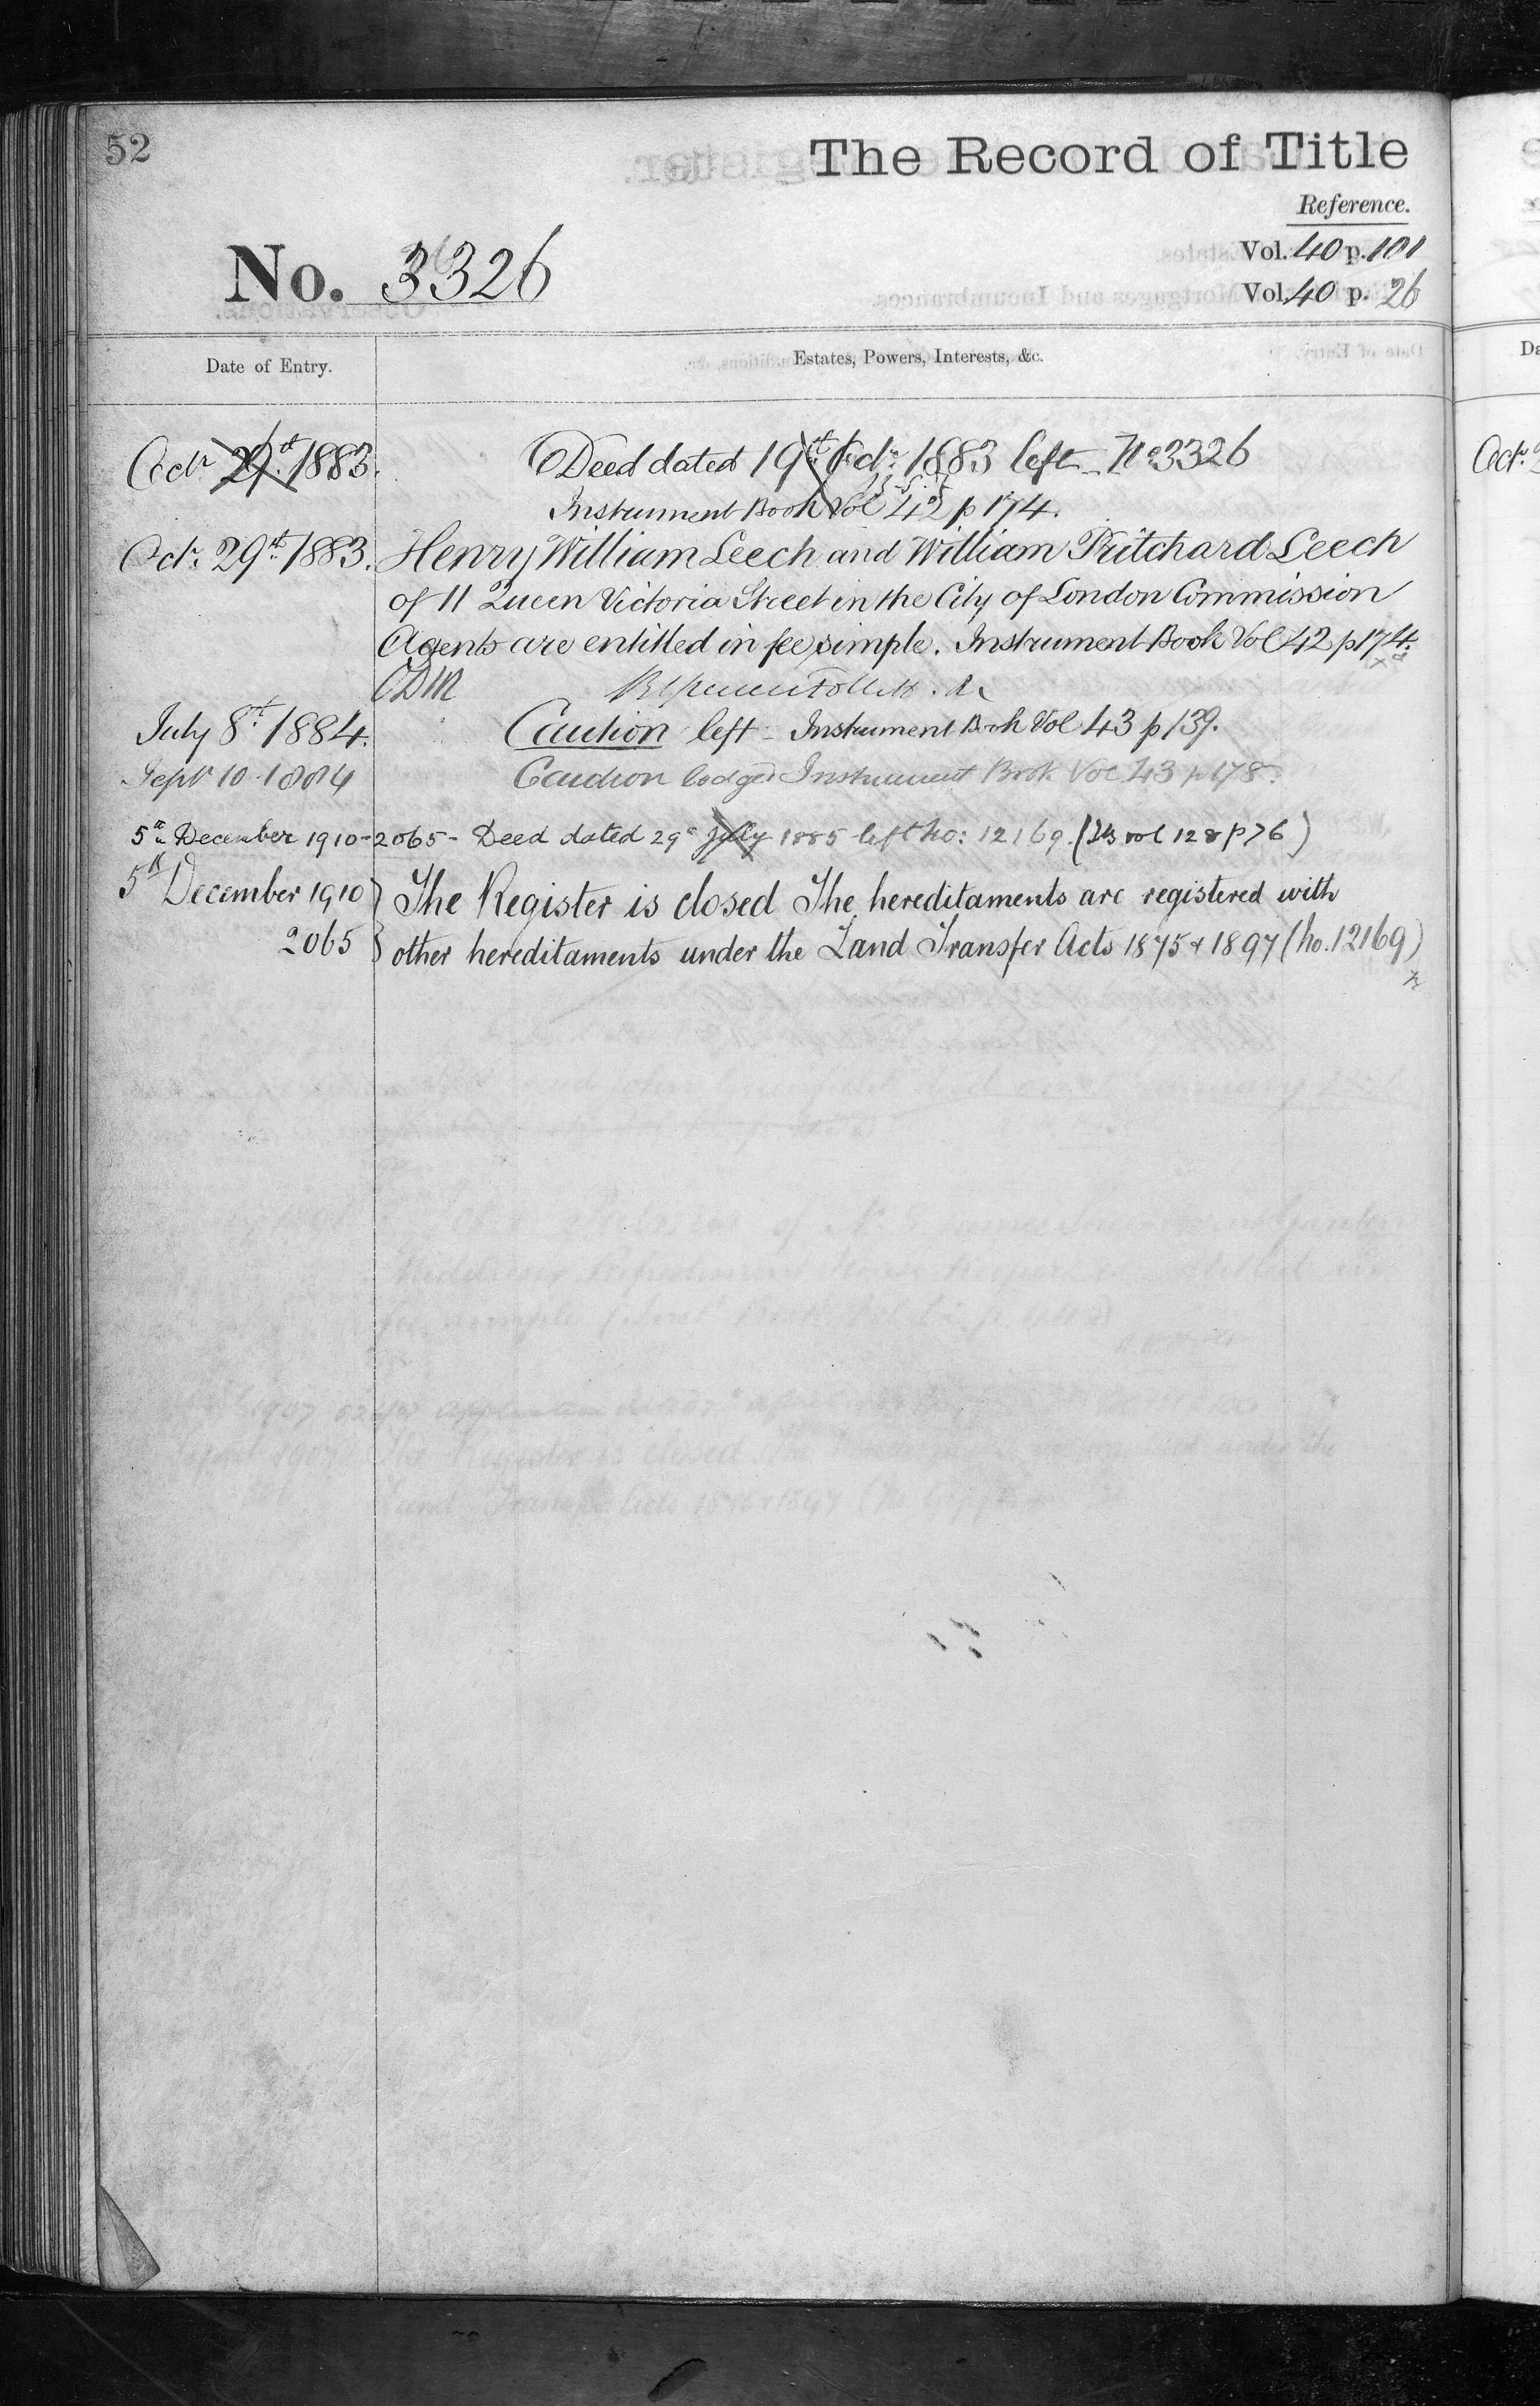 52
The Record of Title
Reference.
Vol. 40 p. 101
No. 3326
Vol. 40 p. 26
Date of Entry.
Estates, Powers, Interests, &c.
Octr 29th 1883.
Deed dated 19th Octr 1883 left No 3326
Instrument Book Vol 42 p 174.
Octr 29th 1883.
Henry William Leech and William Pritchard Leech
of 11 Queen Victoria Street in the City of London Commission
Agents are entitled in fee simple. Instrument Book Vol 42 p 174.
July 8th 1884.
Caution left - Instrument Book Vol 43 p 139.
Septr 10 1884
Caution lodged Instrument Book Vol 43 p 178.
5th December 1910 - 2065 - Deed dated 29th July 1885 left No: 12169. (IB vol 128 p 76)
5th December 1910
The Register is closed The hereditaments are registered with
2065
other hereditaments under the Land Transfer Acts 1875 & 1897 (No. 12169)